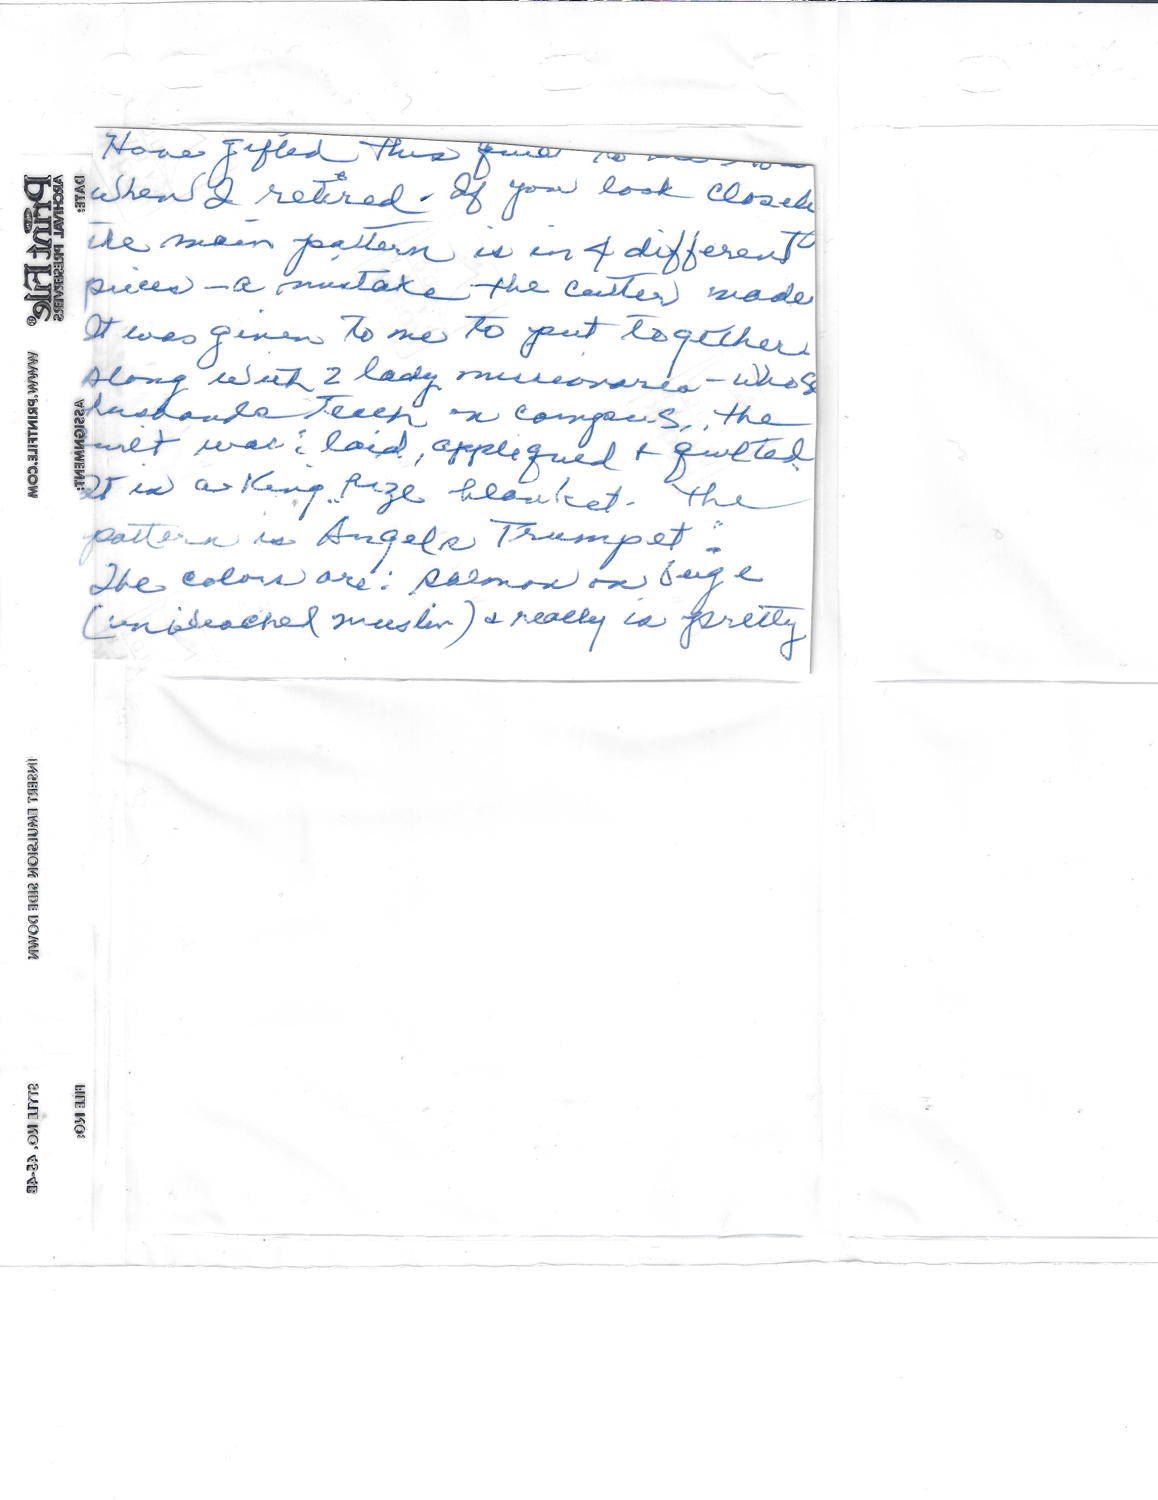 Have gifted this
when I retired. If you look closely
the main pattern is in 4 different
pieces - a mistake the cutter made
It was given to me to put together
along with 2 lady missionaries - whose
husbands teach on campus, the
quilt was: laid, appliqued & quilted
It is a King size blanket. The
pattern is Angels Trumpet".
The colors are: salmon on beige
(unbleached muslin) & really is pretty
DATE:
ARCHIVAL PRESERVERS
Print File®
WWW.PRINTFILE.COM
ASSIGNMENT:
INSERT EMULSION SIDE DOWN
FILE NO:
STYLE NO. 45-4B